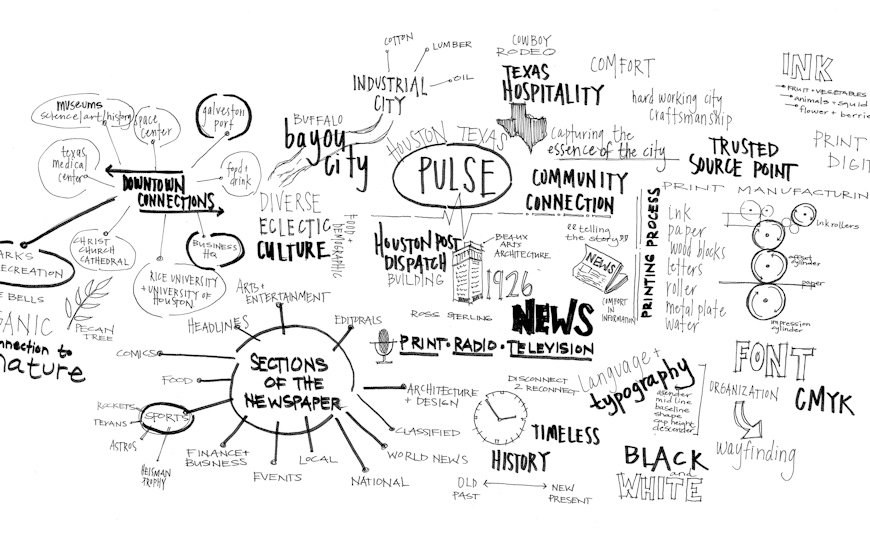 COTTON
LUMBER
OIL
INDUSTRIAL
CITY
COWBOY
RODEO
TEXAS
HOSPITALITY
COMFORT
hard working city
craftsmanship
INK
FRUIT + VEGETABLES
animals + squid
flower + berrie
PRINT
DIGIT
museums
science/art/history
space
center
galveston
port
texas
medical
center
food +
drink
DOWNTOWN
CONNECTIONS
CHRIST
CHURCH
CATHEDRAL
BUSINESS
HQ
RICE UNIVERSITY
+ UNIVERSITY OF
HOUSTON
BUFFALO
bayou
city
HOUSTON TEXAS
PULSE
capturing the
essence of the city
TRUSTED
SOURCE POINT
COMMUNITY
CONNECTION
DIVERSE
ECLECTIC
CULTURE
FOOD +
DEMOGRAPHIC
HOUSTON POST
DISPATCH
BUILDING
BEAUX
ARTS
ARCHITECTURE
1926
ROSS STERLING
"telling
the story"
NEWS
COMFORT
IN
INFORMATION
NEWS
PRINT • RADIO • TELEVISION
PRINTING PROCESS
PRINT MANUFACTURING
ink
paper
wood blocks
letters
roller
metal plate
water
ink rollers
offset
cylinder
paper
impression
cylinder
ARKS
RECREATION
E BELLS
GANIC
nnection to
nature
PECAN
TREE
ARTS +
ENTERTAINMENT
HEADLINES
EDITORIALS
COMICS
FOOD
SPORTS
ROCKETS
TEXANS
ASTROS
HEISMAN
TROPHY
SECTIONS
OF THE
NEWSPAPER
FINANCE +
BUSINESS
EVENTS
LOCAL
NATIONAL
WORLD NEWS
CLASSIFIED
ARCHITECTURE
+ DESIGN
DISCONNECT
2 RECONNECT
TIMELESS
HISTORY
OLD
PAST
NEW
PRESENT
Language +
typography
asender
mid line
baseline
shape
cap height
descender
FONT
ORGANIZATION
CMYK
wayfinding
BLACK
and
WHITE